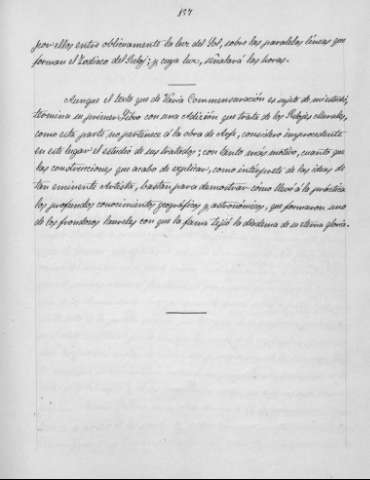 127
por ellos entre oblicuamente la luz del Sol, sobre las paralelas líneas que
forman el Zodiaco del Reloj; y cuya luz, señalará las horas.
Aunque el texto que de Varia Commensuración es sujeto de mi estudio,
termina su primer Libro con una Adición que trata de los Relojes Anulares,
como esta parte no pertenece á la obra de Arfe, considero improcedente
en este lugar el estudio de sus tratados; con tanto más motivo, cuanto que
las construcciones que acabo de explicar, como intérprete de las ideas de
tan eminente Artista, bastan para demostrar cómo llevó á la práctica
los profundos conocimientos geográficos y astronómicos, que formaron uno
de los frondosos laureles con que la fama tejió la diadema de su eterna gloria.